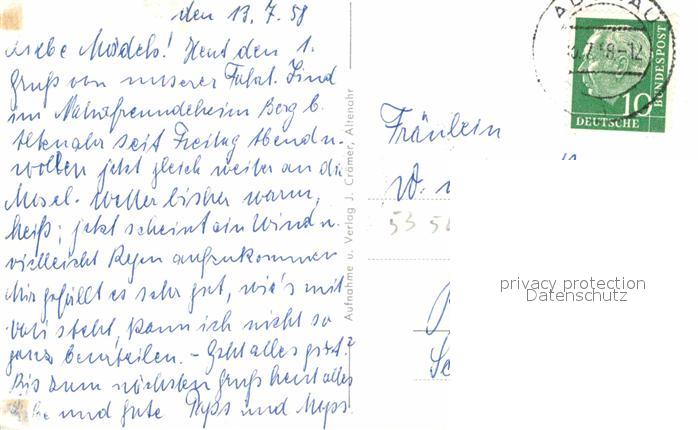 den 13. 7. 58
Liebe Mädels! Heut den 1.
Gruß von unserer Fahrt. Sind
im Naturfreundeheim Berg b.
Altenahr seit Freitag Abend u.
wollen jetzt gleich weiter an die
Mosel. Wetter bisher warm,
heiß; jetzt scheint ein Wind u.
vielleicht Regen aufzukommen
Mir gefällt es sehr gut, wie's mit
Vati steht, kann ich nicht so
ganz beurteilen. - Geht alles gut?
Bis zum nächsten Gruß heut alles
Liebe und Gute Paps und Mups
Aufnahme u. Verlag J. Crämer, Altenahr
Fräulein
W.
53
Sc
ADENAU
10
DEUTSCHE
BUNDESPOST
privacy protection
Datenschutz